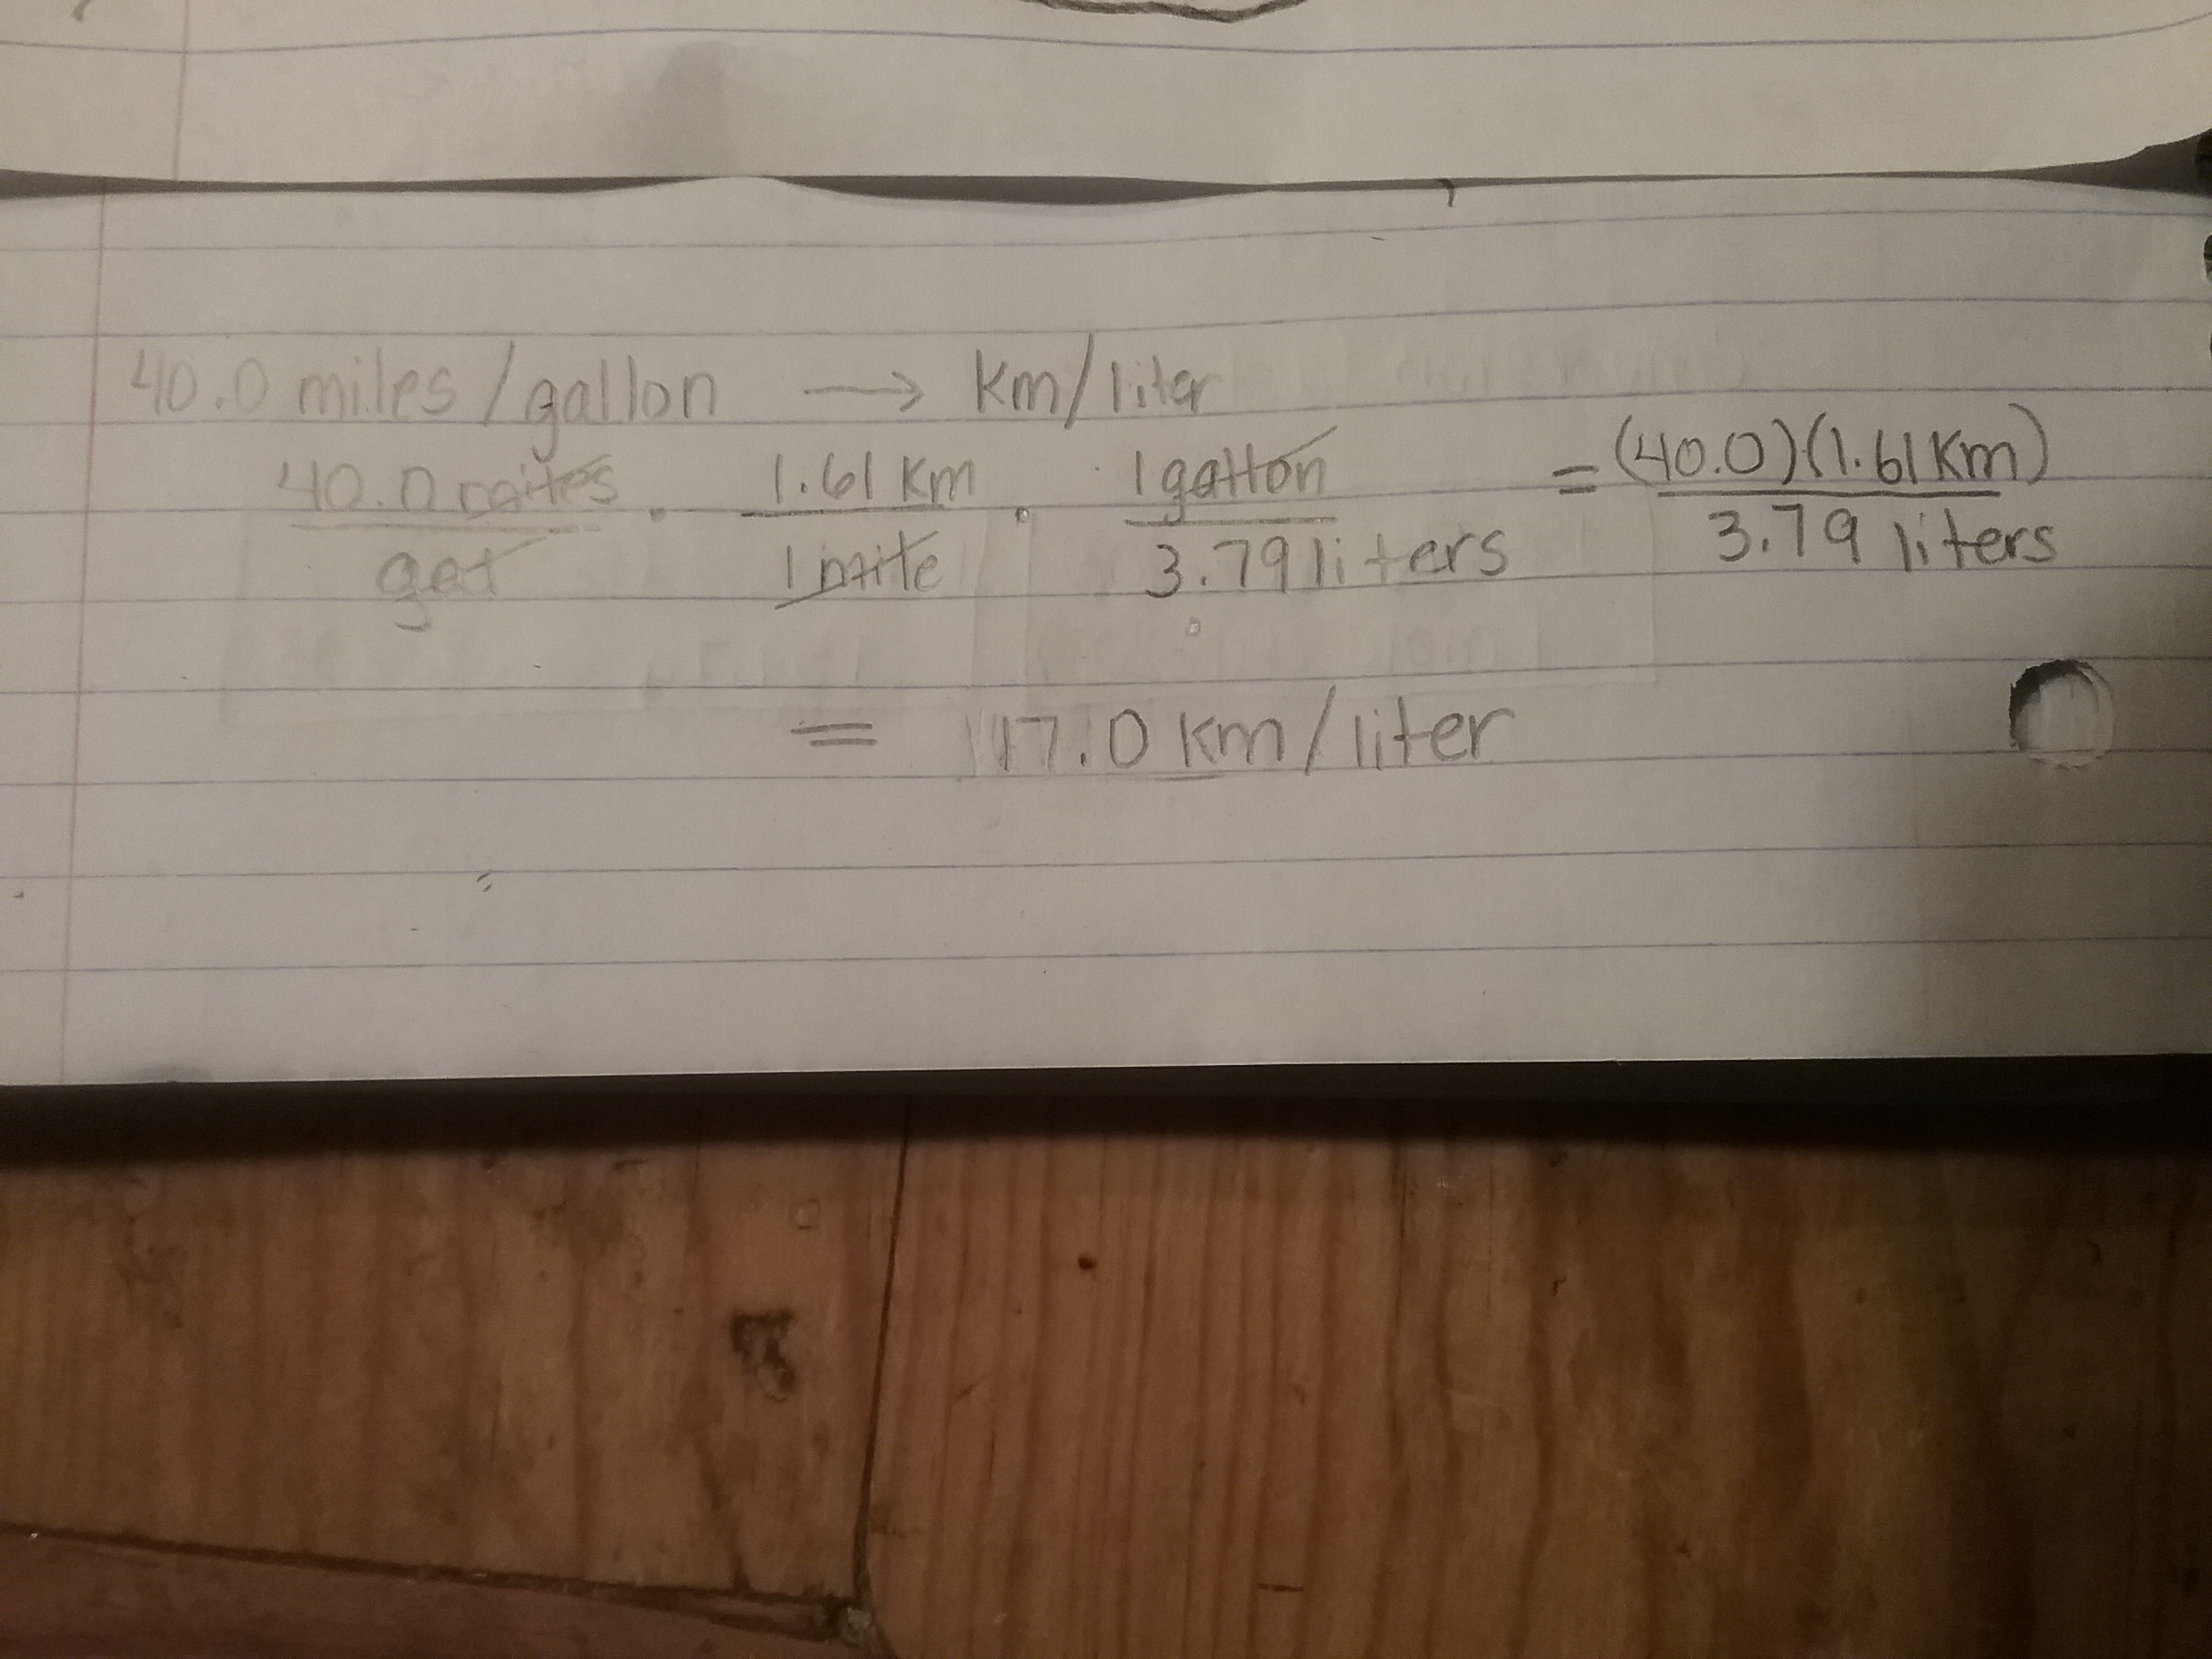 40.0 miles/gallon → km/liter
40.0 miles/gal · 1.61 km/1 mile · 1 gallon/3.79 liters = (40.0)(1.61 km)/3.79 liters
= 17.0 km/liter